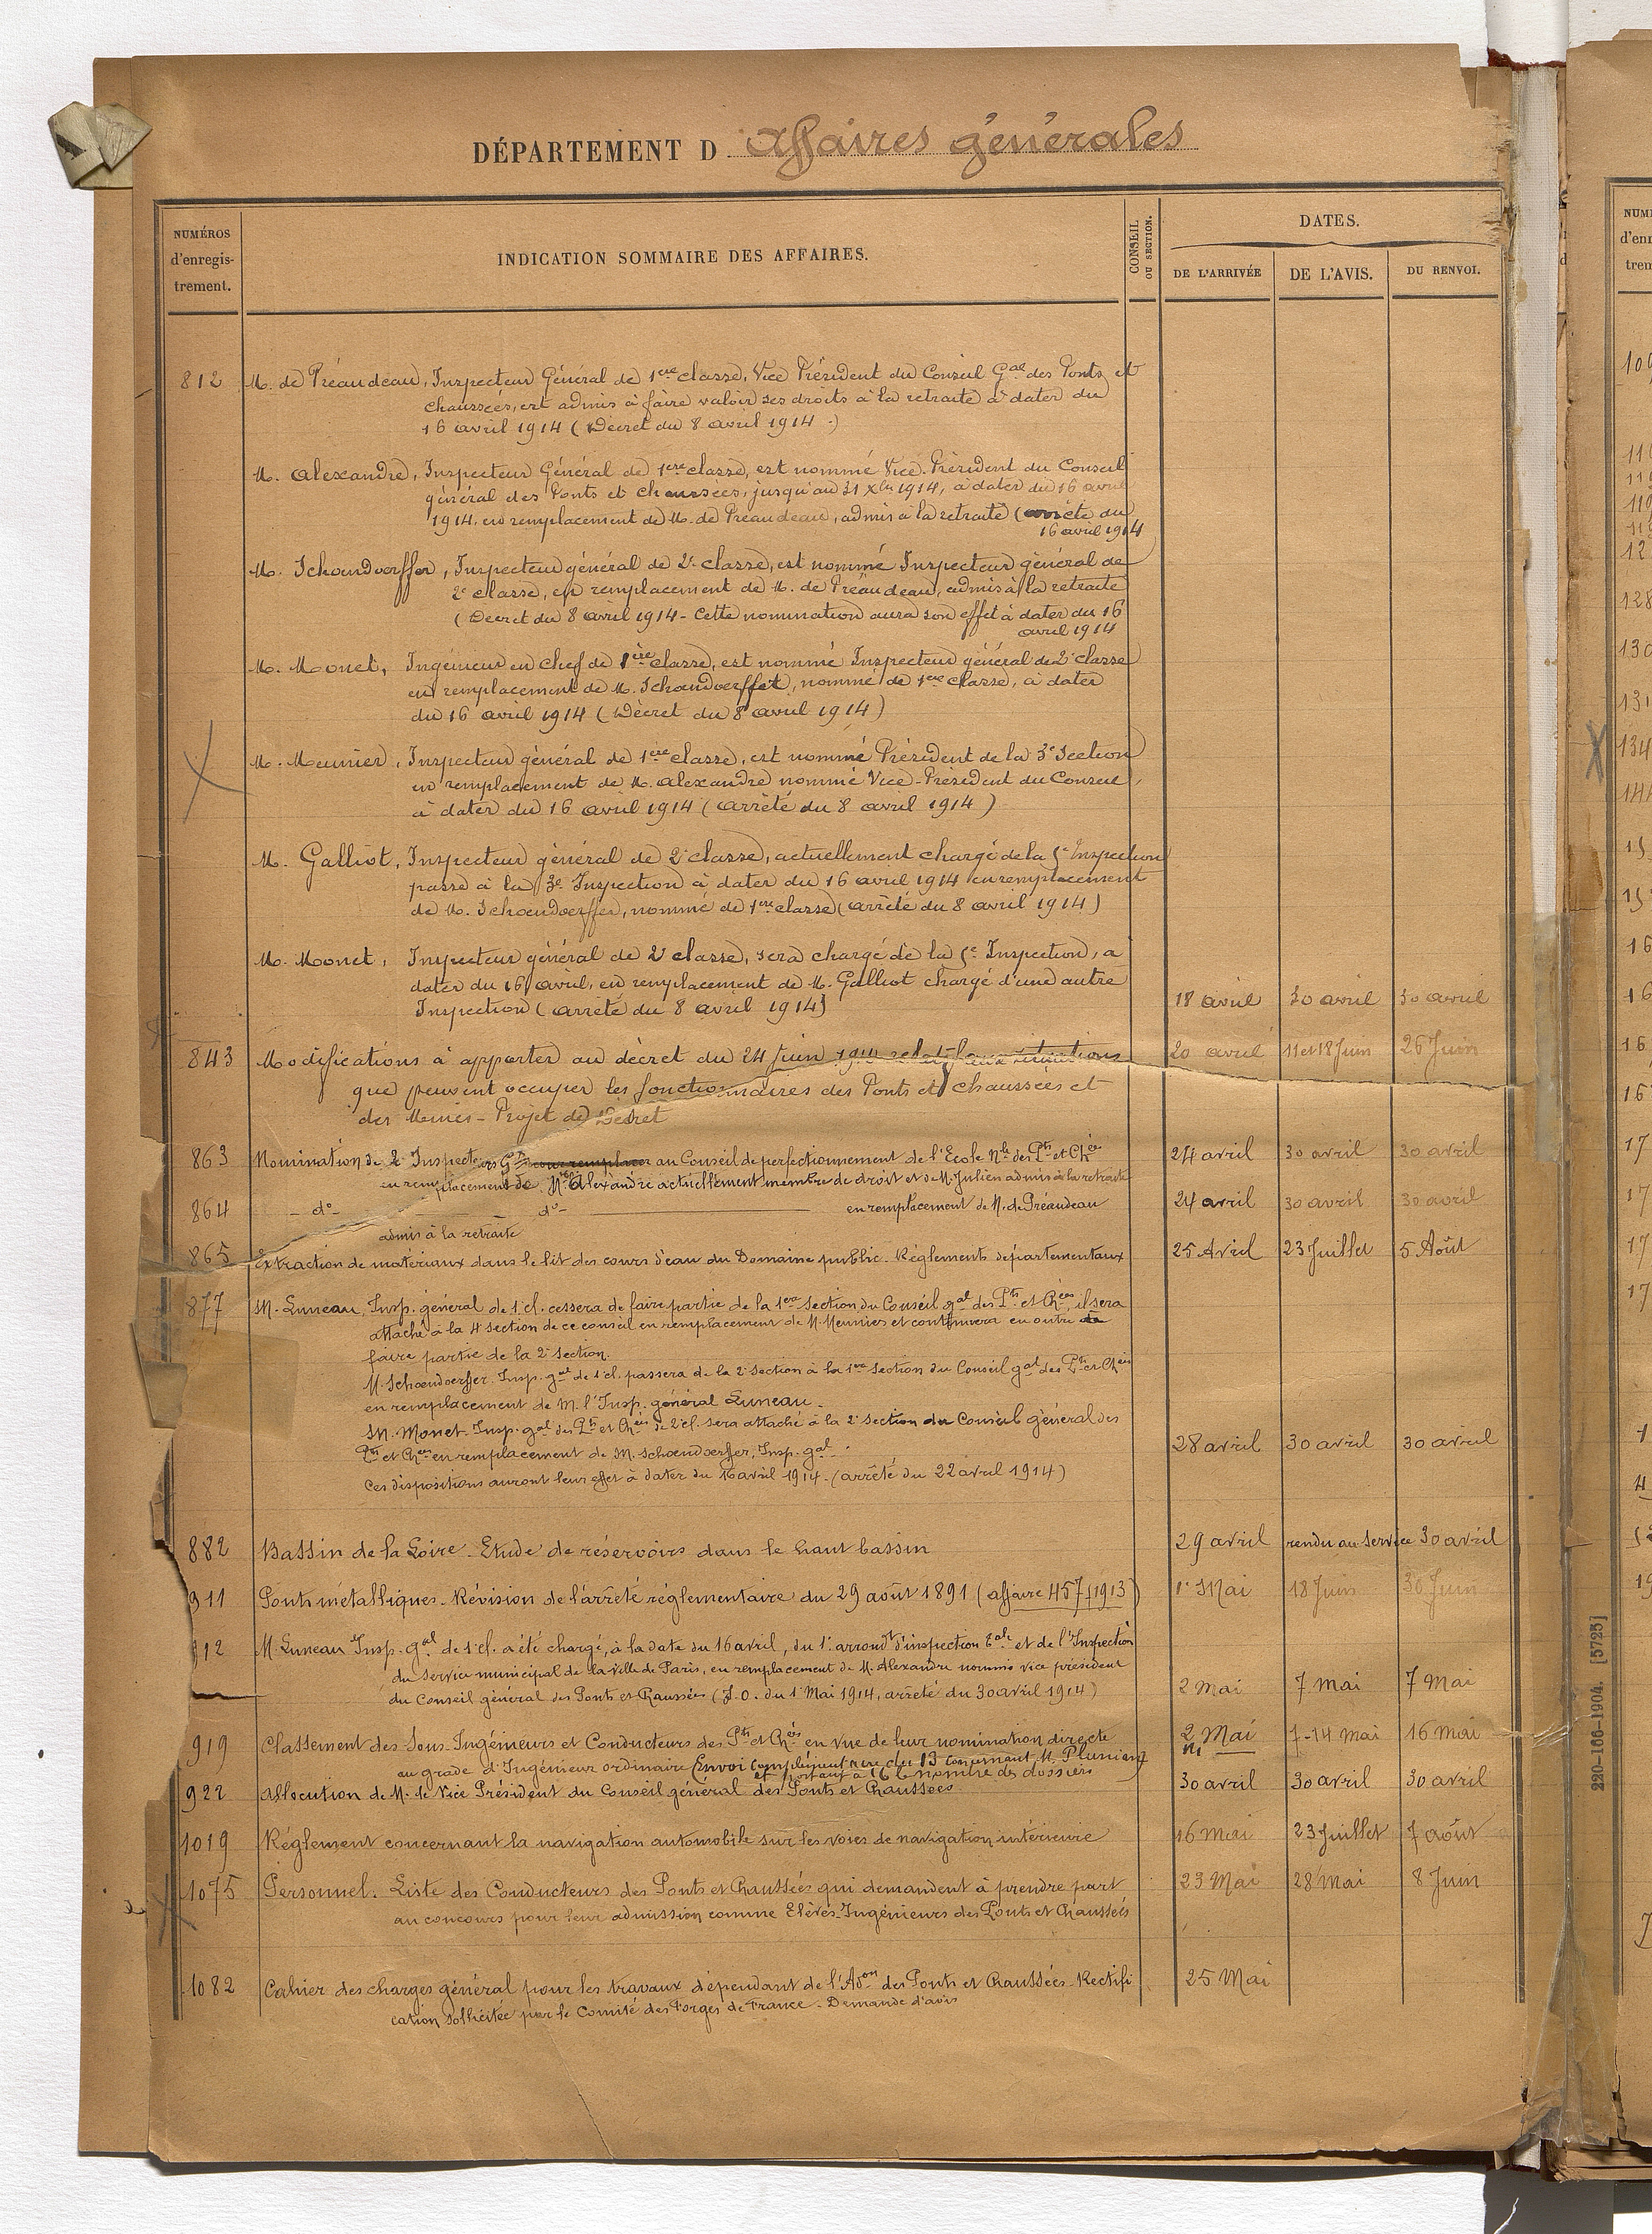 DÉPARTEMENT D Affaires générales
NUMÉROS d'enregis-trement.
INDICATION SOMMAIRE DES AFFAIRES.
CONSEIL OU SECTION.
DATES.
DE L'ARRIVÉE
DE L'AVIS.
DU RENVOI.
812 M. de Préaudeau, Inspecteur Général de 1ère classe, Vice Président du Conseil Gal des Ponts et
chaussées, est admis à faire valoir ses droits à la retraite à dater du
16 avril 1914 (Décret du 8 avril 1914 -)
M. Alexandre, Inspecteur Général de 1ère classe, est nommé Vice-Président du Conseil
général des Ponts et chaussées, jusqu'au 31 Xbre 1914, à dater du 16 avril
1914, en remplacement de M. de Préaudeau, admis à la retraite (arrêté du
16 avril 1914
M. Schoendoerffer, Inspecteur général de 2e classe, est nommé Inspecteur général de
2e classe, en remplacement de M. de Préaudeau, admis à la retraite
(Décret du 8 avril 1914 - Cette nomination aura son effet à dater du 16
avril 1914
M. Monet, Ingénieur en chef de 1ère classe, est nommé Inspecteur général de 2e classe
en remplacement de M. Schoendoerffer, nommé de 1ère classe, à dater
du 16 avril 1914 (Décret du 8 avril 1914)
M. Meunier, Inspecteur général de 1ère classe, est nommé Président de la 3e Section
en remplacement de M. Alexandre nommé Vice-Président du Conseil,
à dater du 16 avril 1914 (arrêté du 8 avril 1914)
M. Galliot, Inspecteur général de 2e classe, actuellement chargé de la 5e Inspection
passe à la 3e Inspection à dater du 16 avril 1914 en remplacement
de M. Schoendoerffer, nommé de 1ère classe (arrêté du 8 avril 1914)
M. Monet, Inspecteur général de 2e classe, sera chargé de la 5e Inspection, à
dater du 16 avril, en remplacement de M. Galliot chargé d'une autre
Inspection (arrêté du 8 avril 1914) 18 avril 30 avril 30 avril
843 Modifications à apporter au décret du 24 Juin relatif aux situations 20 avril 11 et 18 Juin 26 Juin
que peuvent occuper les fonctionnaires des Ponts et chaussées et
des Mines - Projet de Décret
863 Nomination de 2 Inspecteurs Gx pour remplacer au Conseil de perfectionnement de l'Ecole Nle des Pts et Chées 24 avril 30 avril 30 avril
en remplacement de M. Alexandre actuellement membre de droit et de M. Julien admis à la retraite
864 - do - - do - en remplacement de M. de Préaudeau 24 avril 30 avril 30 avril
admis à la retraite
865 Extraction de matériaux dans le lit des cours d'eau du Domaine public - Réglements départementaux 25 Avril 23 Juillet 5 Août
877 M. Luneau, Insp. général de 1e cl. cessera de faire partie de la 1ere section du Conseil gal des Pts et Chées, il sera
attaché à la 4 section de ce conseil en remplacement de M. Meunier et continuera en outre de
faire partie de la 2e section.
M. Schoendoerffer Insp. gal de 1e cl. passera de la 2e section à la 1ere section du Conseil gal des Pts et Chées
en remplacement de M. l'Insp. général Luneau.
M. Monet Insp. gal des Pts et Chées de 2e cl. sera attaché à la 2e section du Conseil général des
Pts et Chées en remplacement de M. Schoendoerffer, Insp. gal. 28 avril 30 avril 30 avril
Ces dispositions auront leur effet à dater du 16 avril 1914. (arrêté du 22 avril 1914)
882 Bassin de la Loire - Etude de réservoirs dans le haut bassin 29 avril rendu au service 30 avril
911 Ponts métalliques - Révision de l'arrêté réglementaire du 29 août 1891 (affaire 457/1913) 1er Mai 18 Juin 30 Juin
912 M. Luneau Insp. gal de 1e cl. a été chargé, à la date du 16 avril, du 1er arrondt d'inspection Gale et de l'Inspection
du Service municipal de la ville de Paris, en remplacement de M. Alexandre nommé vice président
du Conseil général des Ponts et Chaussées (J.O. du 1er Mai 1914, arrêté du 30 avril 1914) 2 Mai 7 mai 7 Mai
919 Classement des Sous-Ingénieurs et Conducteurs des Pts et Chées en vue de leur nomination directe 2 Mai 7-14 mai 16 mai
au grade d'Ingénieur ordinaire (Envoi complémentaire du 13 concernant M.
et portant à 16 le nombre des dossiers
922 Allocution de M. le Vice Président du Conseil général des Ponts et Chaussées 30 avril 30 avril 30 avril
1019 Réglement concernant la navigation automobile sur les voies de navigation intérieure 16 Mai 23 Juillet 7 août
1075 Personnel. Liste des Conducteurs des Ponts et Chaussées qui demandent à prendre part 23 Mai 28 Mai 8 Juin
au concours pour leur admission comme Elèves-Ingénieurs des Ponts et Chaussées
1082 Cahier des charges général pour les travaux dépendant de l'Adon des Ponts et Chaussées - Rectifi 25 Mai
cation sollicitée par le Comité des Forges de France - Demande d'avis
220-166-1904. [5725]